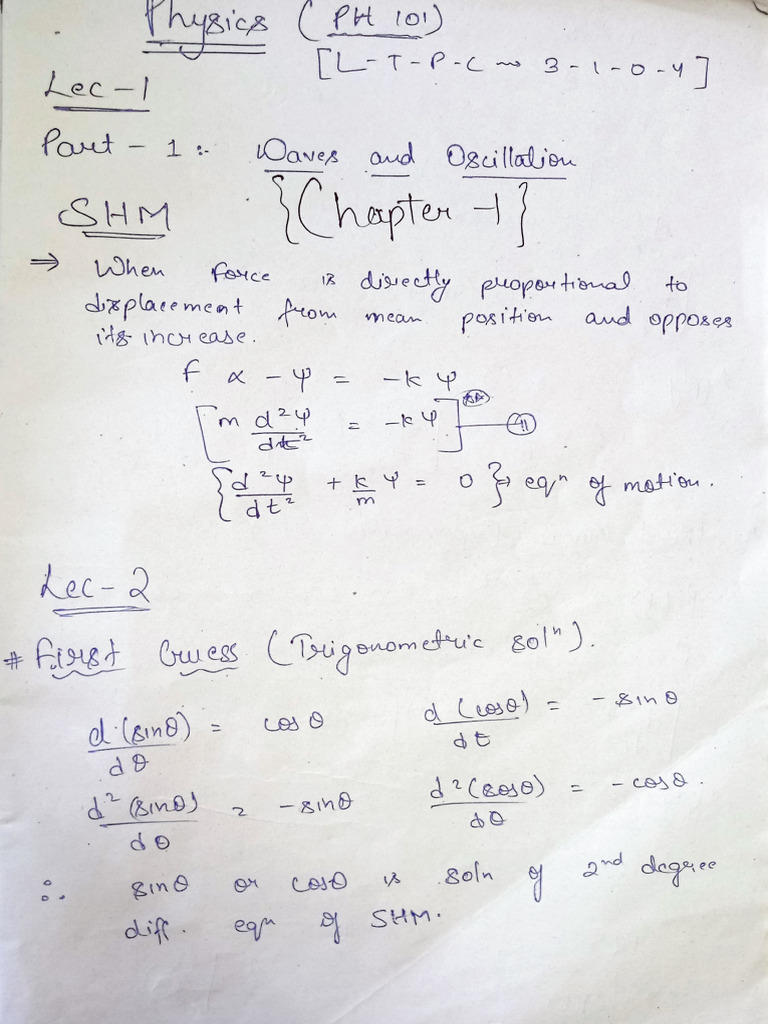 Physics (PH 101)
[L-T-P-C → 3-1-0-4]
Lec-1
Part-1:- Waves and Oscillation
SHM {Chapter-1}
⇒ When force is directly proportional to
displacement from mean position and opposes
its increase.
f α -ψ = -kψ
[m d²ψ/dt² = -kψ]
{d²ψ/dt² + k/m ψ = 0} → eqⁿ of motion.
Lec-2
# First Guess (Trigonometric solⁿ).
d(sinθ)/dθ = cosθ d(cosθ)/dt = -sinθ
d²(sinθ)/dθ = -sinθ d²(cosθ)/dθ = -cosθ.
∴ sinθ or cosθ is soln of 2nd degree
diff. eqⁿ of SHM.